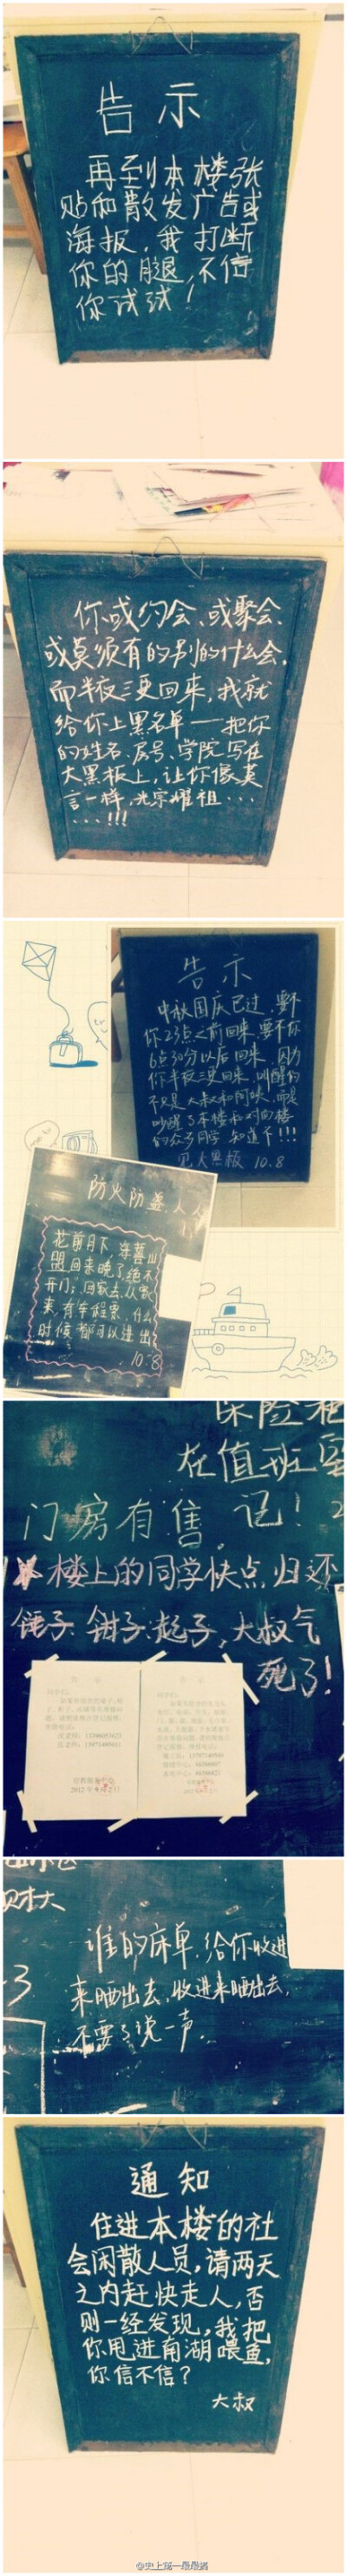 告示
再到本楼张
贴和散发广告或
海报，我打断
你的腿，不信
你试试！
你或约会、或聚会、
或莫须有的别的什么会，
而半夜三更回来，我就
给你上黑名单——把你
的姓名、房号、学院写在
大黑板上，让你像莫
言一样，光宗耀祖...
...!!!
告示
中秋国庆已过，要不
你23点之前回来，要不你
6点30分以后回来，因为
你半夜三更回来，叫醒的
不只是大叔和阿姨，而是
吵醒了本楼和对面楼
的众多同学，知道不!!!
见大黑板 10.8
防火防盗 人人
花前月下 海誓山
盟回来晚了，绝不
开门；回家去，从家
来，有车程票，什么
时候都可以进出
10.8
保险柜
在值班室
门房有售。记！
楼上的同学快点归还
锤子 钳子 起子，大叔气
死了！
财大
谁的床单，给你收进
来晒出去，收进来晒出去，
不要了说一声。
通知
住进本楼的社
会闲散人员，请两天
之内赶快走人，否
则一经发现，我把
你甩进南湖喂鱼，
你信不信？
大叔
@史上第一最最搞